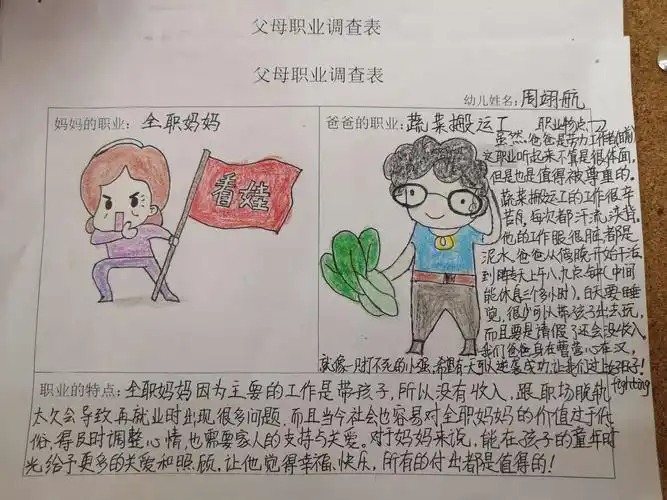 父母职业调查表
父母职业调查表
幼儿姓名：周翊航
妈妈的职业：全职妈妈
看娃
爸爸的职业：蔬菜搬运工
职业特点→
虽然爸爸是劳力工作者
这职业听起来不算是很体面，
但是也是值得被尊重的。
蔬菜搬运工的工作很辛
苦，每次都汗流浃背。
他的工作服很脏都是
泥水。爸爸从傍晚开始干活
到隔天上午八九点
能休息三个多小时）。白天要睡
觉，很少可以带孩子出去玩，
而且要是请假了还会没收入。
我们爸爸身在曹营心在汉，
就像一只打不死的小强，希望有天可以逆袭成功，让我们过上好日子！
fighting
职业的特点：全职妈妈因为主要的工作是带孩子，所以没有收入，跟职场脱轨
太久会导致再就业时出现很多问题，而且当今社会也容易对全职妈妈的价值过于低
俗，得及时调整心情，也需要家人的支持与关爱。对于妈妈来说，能在孩子的童年时
光给予更多的关爱和照顾，让他觉得幸福、快乐，所有的付出都是值得的！